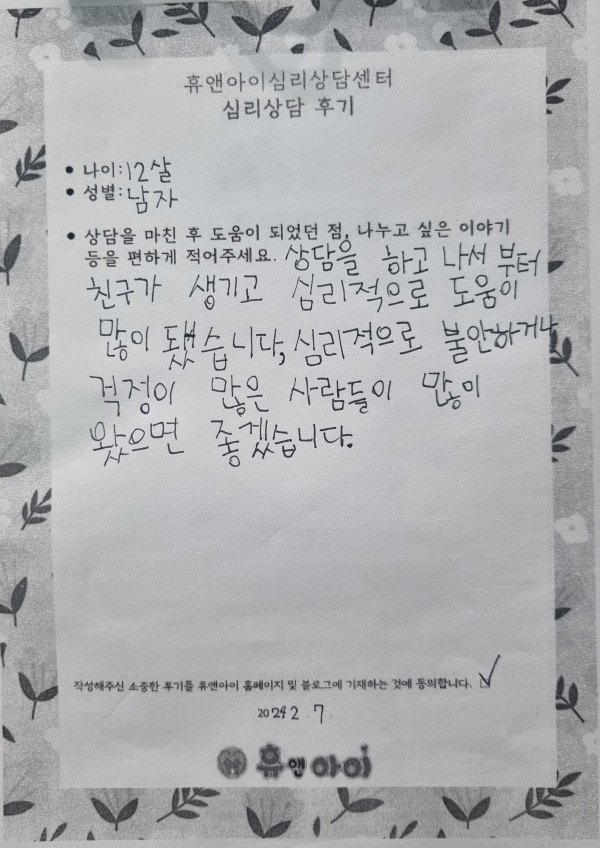 휴앤아이심리상담센터
심리상담 후기
• 나이:12살
• 성별:남자
• 상담을 마친 후 도움이 되었던 점, 나누고 싶은 이야기
등을 편하게 적어주세요. 상담을 하고 나서 부터
친구가 생기고 심리적으로 도움이
많이 됐습니다, 심리적으로 불안하거나
걱정이 많은 사람들이 많이
왔으면 좋겠습니다.
작성해주신 소중한 후기를 휴앤아이 홈페이지 및 블로그에 기재하는 것에 동의합니다. ✓
2024 2. 7.
휴앤아이